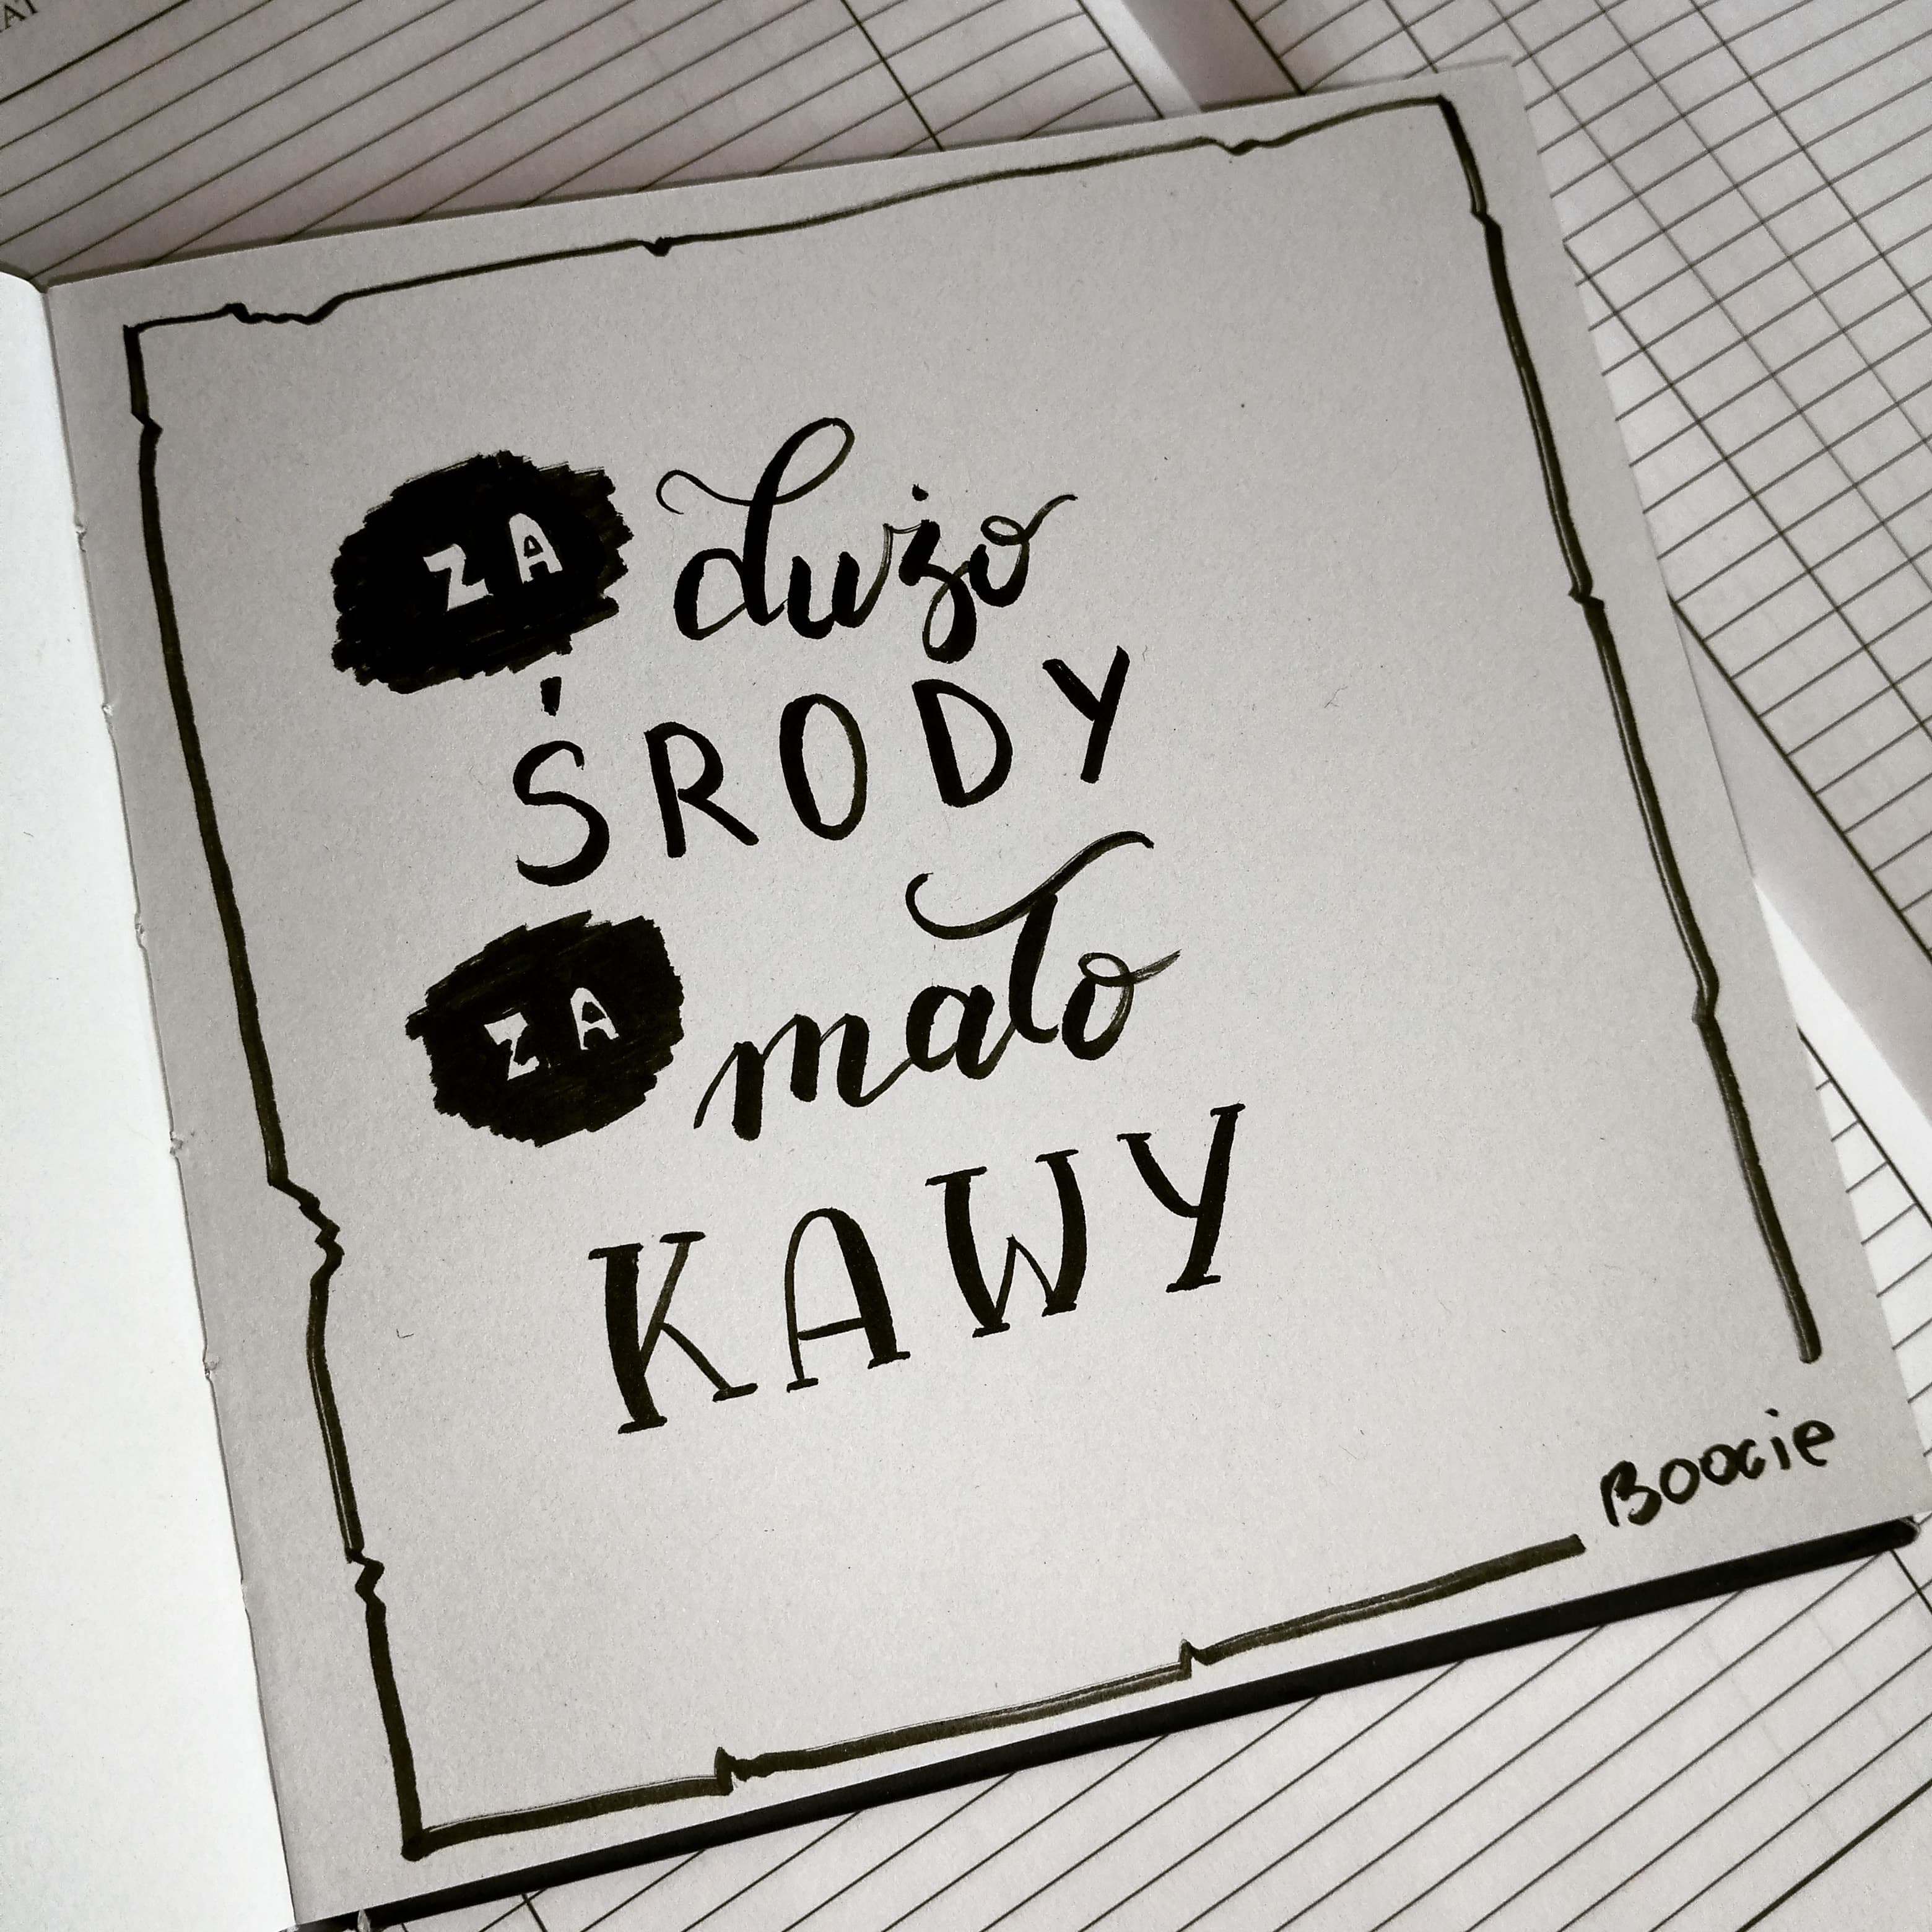 ZA dużo
ŚRODY
ZA mało
KAWY
Boocie